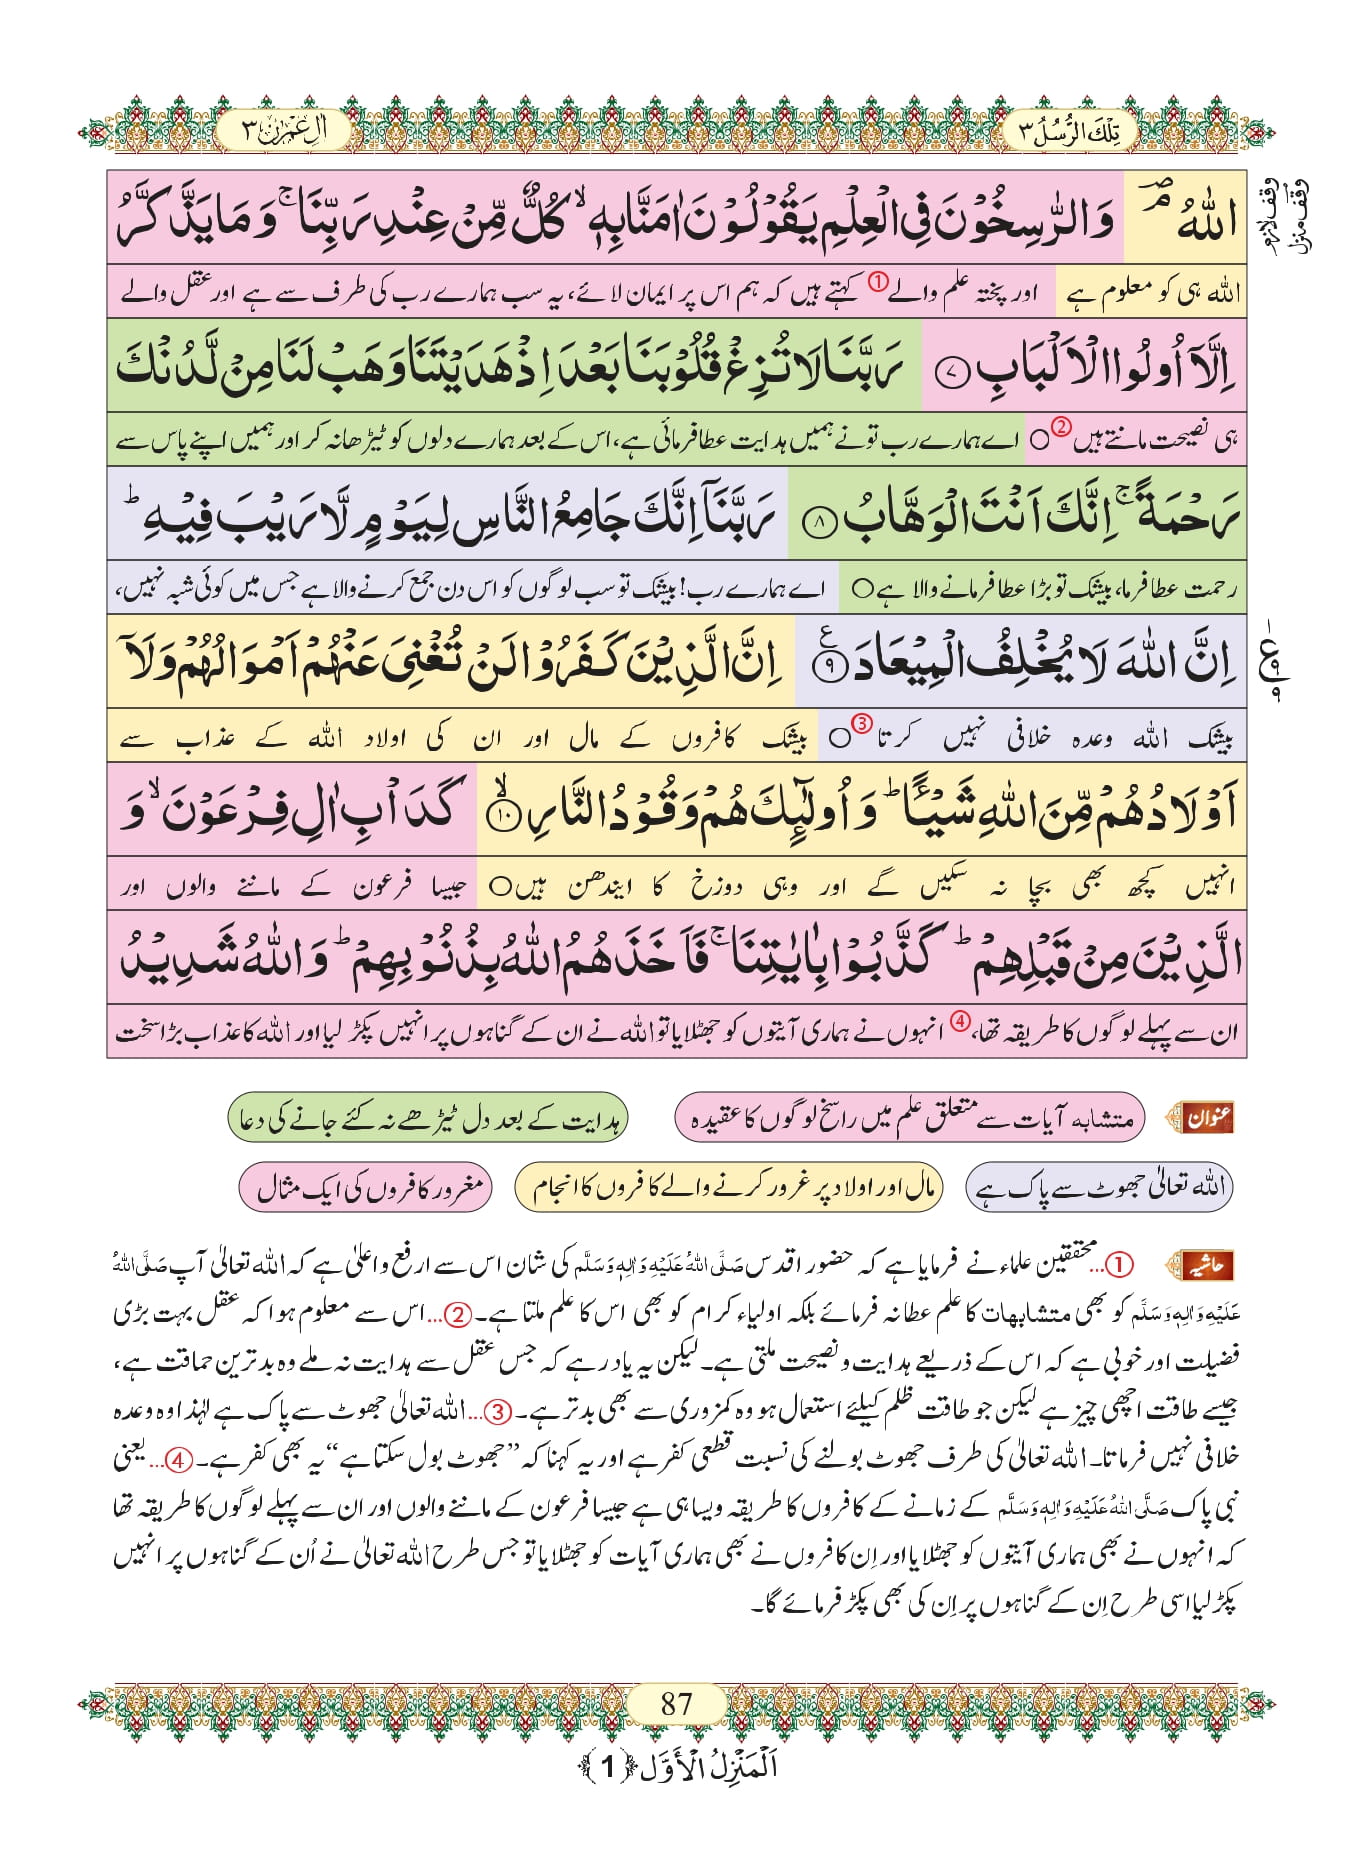 تِلْكَ الرُّسُلُ ٣
اٰلِ عِمْرٰن ٣
اللّٰهُ ؔۘ وَ الرّٰسِخُوْنَ فِی الْعِلْمِ یَقُوْلُوْنَ اٰمَنَّا بِهٖۙ كُلٌّ مِّنْ عِنْدِ رَبِّنَاۚ وَ مَا یَذَّكَّرُ
وقف لازم
وقف منزل
اللّٰه ہی کو معلوم ہے اور پختہ علم والے① کہتے ہیں کہ ہم اس پر ایمان لائے، یہ سب ہمارے رب کی طرف سے ہے اور عقل والے
اِلَّاۤ اُولُوا الْاَلْبَابِ ﴿۷﴾ رَبَّنَا لَا تُزِغْ قُلُوْبَنَا بَعْدَ اِذْ هَدَیْتَنَا وَ هَبْ لَنَا مِنْ لَّدُنْكَ
ہی نصیحت مانتے ہیں②○ اے ہمارے رب تو نے ہمیں ہدایت عطا فرمائی ہے، اس کے بعد ہمارے دلوں کو ٹیڑھا نہ کر اور ہمیں اپنے پاس سے
رَحْمَةًۚ اِنَّكَ اَنْتَ الْوَهَّابُ ﴿۸﴾ رَبَّنَاۤ اِنَّكَ جَامِعُ النَّاسِ لِیَوْمٍ لَّا رَیْبَ فِیْهِؕ
رحمت عطا فرما، بیشک تو بڑا عطا فرمانے والا ہے○ اے ہمارے رب! بیشک تو سب لوگوں کو اس دن جمع کرنے والا ہے جس میں کوئی شبہ نہیں،
اِنَّ اللّٰهَ لَا یُخْلِفُ الْمِیْعَادَ ﴿۹﴾ع اِنَّ الَّذِیْنَ كَفَرُوْا لَنْ تُغْنِیَ عَنْهُمْ اَمْوَالُهُمْ وَ لَاۤ
بیشک اللّٰه وعدہ خلافی نہیں کرتا③○ بیشک کافروں کے مال اور ان کی اولاد اللّٰه کے عذاب سے
اَوْلَادُهُمْ مِّنَ اللّٰهِ شَیْــٴًـاؕ وَ اُولٰٓىٕكَ هُمْ وَ قُوْدُ النَّارِۙ ﴿۱۰﴾ كَدَاْبِ اٰلِ فِرْعَوْنَۙ وَ
انہیں کچھ بھی بچا نہ سکیں گے اور وہی دوزخ کا ایندھن ہیں○ جیسا فرعون کے ماننے والوں اور
الَّذِیْنَ مِنْ قَبْلِهِمْؕ كَذَّبُوْا بِاٰیٰتِنَاۚ فَاَخَذَهُمُ اللّٰهُ بِذُنُوْبِهِمْؕ وَ اللّٰهُ شَدِیْدُ
ان سے پہلے لوگوں کا طریقہ تھا،④ انہوں نے ہماری آیتوں کو جھٹلایا تو اللّٰه نے ان کے گناہوں پر انہیں پکڑ لیا اور اللّٰه کا عذاب بڑا سخت
عنوان متشابہ آیات سے متعلق علم میں راسخ لوگوں کا عقیدہ ہدایت کے بعد دل ٹیڑھے نہ کئے جانے کی دعا
اللّٰه تعالیٰ جھوٹ سے پاک ہے مال اور اولاد پر غرور کرنے والے کافروں کا انجام مغرور کافروں کی ایک مثال
حاشیہ ①...محققین علماء نے فرمایا ہے کہ حضور اقدس صَلَّی اللّٰهُ عَلَیْهِ وَاٰلِهٖ وَسَلَّم کی شان اس سے ارفع و اعلیٰ ہے کہ اللّٰه تعالیٰ آپ صَلَّی اللّٰهُ
عَلَیْهِ وَاٰلِهٖ وَسَلَّم کو بھی متشابہات کا علم عطا نہ فرمائے بلکہ اولیاء کرام کو بھی اس کا علم ملتا ہے۔ ②...اس سے معلوم ہوا کہ عقل بہت بڑی
فضیلت اور خوبی ہے کہ اس کے ذریعے ہدایت و نصیحت ملتی ہے۔ لیکن یہ یاد رہے کہ جس عقل سے ہدایت نہ ملے وہ بدترین حماقت ہے،
جیسے طاقت اچھی چیز ہے لیکن جو طاقت ظلم کیلئے استعمال ہو وہ کمزوری سے بھی بدتر ہے۔ ③...اللّٰه تعالیٰ جھوٹ سے پاک ہے لہٰذا وہ وعدہ
خلافی نہیں فرماتا۔ اللّٰه تعالیٰ کی طرف جھوٹ بولنے کی نسبت قطعی کفر ہے اور یہ کہنا کہ ”جھوٹ بول سکتا ہے“ یہ بھی کفر ہے۔ ④...یعنی
نبی پاک صَلَّی اللّٰهُ عَلَیْهِ وَاٰلِهٖ وَسَلَّم کے زمانے کے کافروں کا طریقہ ویسا ہی ہے جیسا فرعون کے ماننے والوں اور ان سے پہلے لوگوں کا طریقہ تھا
کہ انہوں نے بھی ہماری آیتوں کو جھٹلایا اور اِن کافروں نے بھی ہماری آیات کو جھٹلایا تو جس طرح اللّٰه تعالیٰ نے اُن کے گناہوں پر انہیں
پکڑ لیا اسی طرح اِن کے گناہوں پر اِن کی بھی پکڑ فرمائے گا۔
87
اَلْمَنْزِلُ الْاَوَّل ﴿1﴾